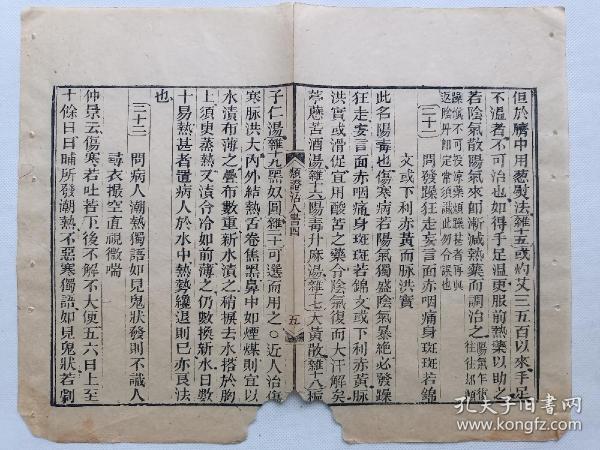 但於臍中用葱熨法雜十五或灼艾三五百以來手足
不溫者不可治也如得手足溫更服前熱藥以助之
若陰氣散陽氣來即漸減熱藥而調治之陽氣乍復往往却煩
躁慎不可投凉藥煩躁甚者再與
返陰丹即定常須識此勿令誤也
三十一 問發躁狂走妄言面赤咽痛身斑斑若錦
文或下利赤黃而脉洪實
此名陽毒也傷寒病若陽氣獨盛陰氣暴絶必發躁
狂走妄言面赤咽痛身斑斑若錦文或下利赤黃脉
洪實或滑促宜用酸苦之藥令陰氣復而大汗解矣
葶藶苦酒湯雜十六陽毒升麻湯雜十七大黃散雜十八梔
類證活人書四
五
子仁湯雜十九黑奴圓雜二十可選而用之○近人治傷
寒脉洪大內外結熱舌卷焦黑鼻中如煙煤則宜以
水漬布薄之疊布數重新水漬之稍捩去水搭於胸
上須臾蒸熱又漬令冷如前薄之仍數換新水日數
十易熱甚者置病人於水中熱勢纔退則已亦良法
也
三十二 問病人潮熱獨語如見鬼狀發則不識人
尋衣撮空直視微喘
仲景云傷寒若吐若下後不解不大便五六日上至
十餘日日晡所發潮熱不惡寒獨語如見鬼狀若劇
孔夫子旧书网
www.kongfz.com